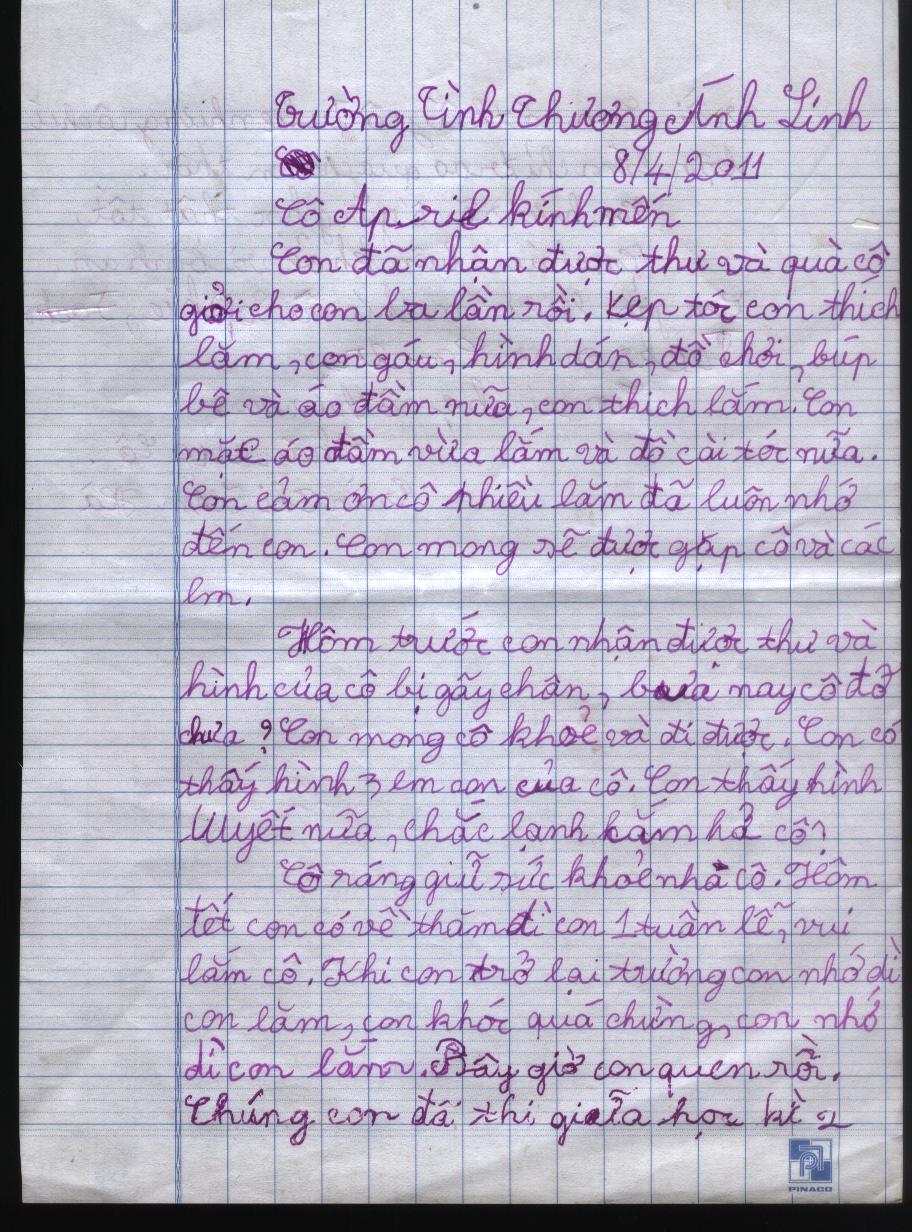 Trường Tình Thương Ánh Linh
8/4/2011
Cô April kính mến
Con đã nhận được thư và quà cô
gởi cho con ba lần rồi. Kẹp tóc con thích
lắm, con gấu, hình dán, đồ chơi, búp
bê và áo đầm nữa, con thích lắm. Con
mặc áo đầm vừa lắm và đồ cài tóc nữa.
Con cảm ơn cô nhiều lắm đã luôn nhớ
đến con. Con mong sẽ được gặp cô và các
em.
Hôm trước con nhận được thư và
hình của cô bị gãy chân, bữa nay cô đỡ
chưa? Con mong cô khoẻ và đi được. Con có
thấy hình 3 em con của cô. Con thấy hình
tuyết nữa, chắc lạnh lắm hả cô?
Cô ráng giữ sức khoẻ nha cô. Hôm
tết con có về thăm dì con 1 tuần lễ, vui
lắm cô. Khi con trở lại trường con nhớ dì
con lắm, con khóc quá chừng, con nhớ
dì con lắm. Bây giờ con quen rồi.
Chúng con đã thi giữa học kì 2
PINACO